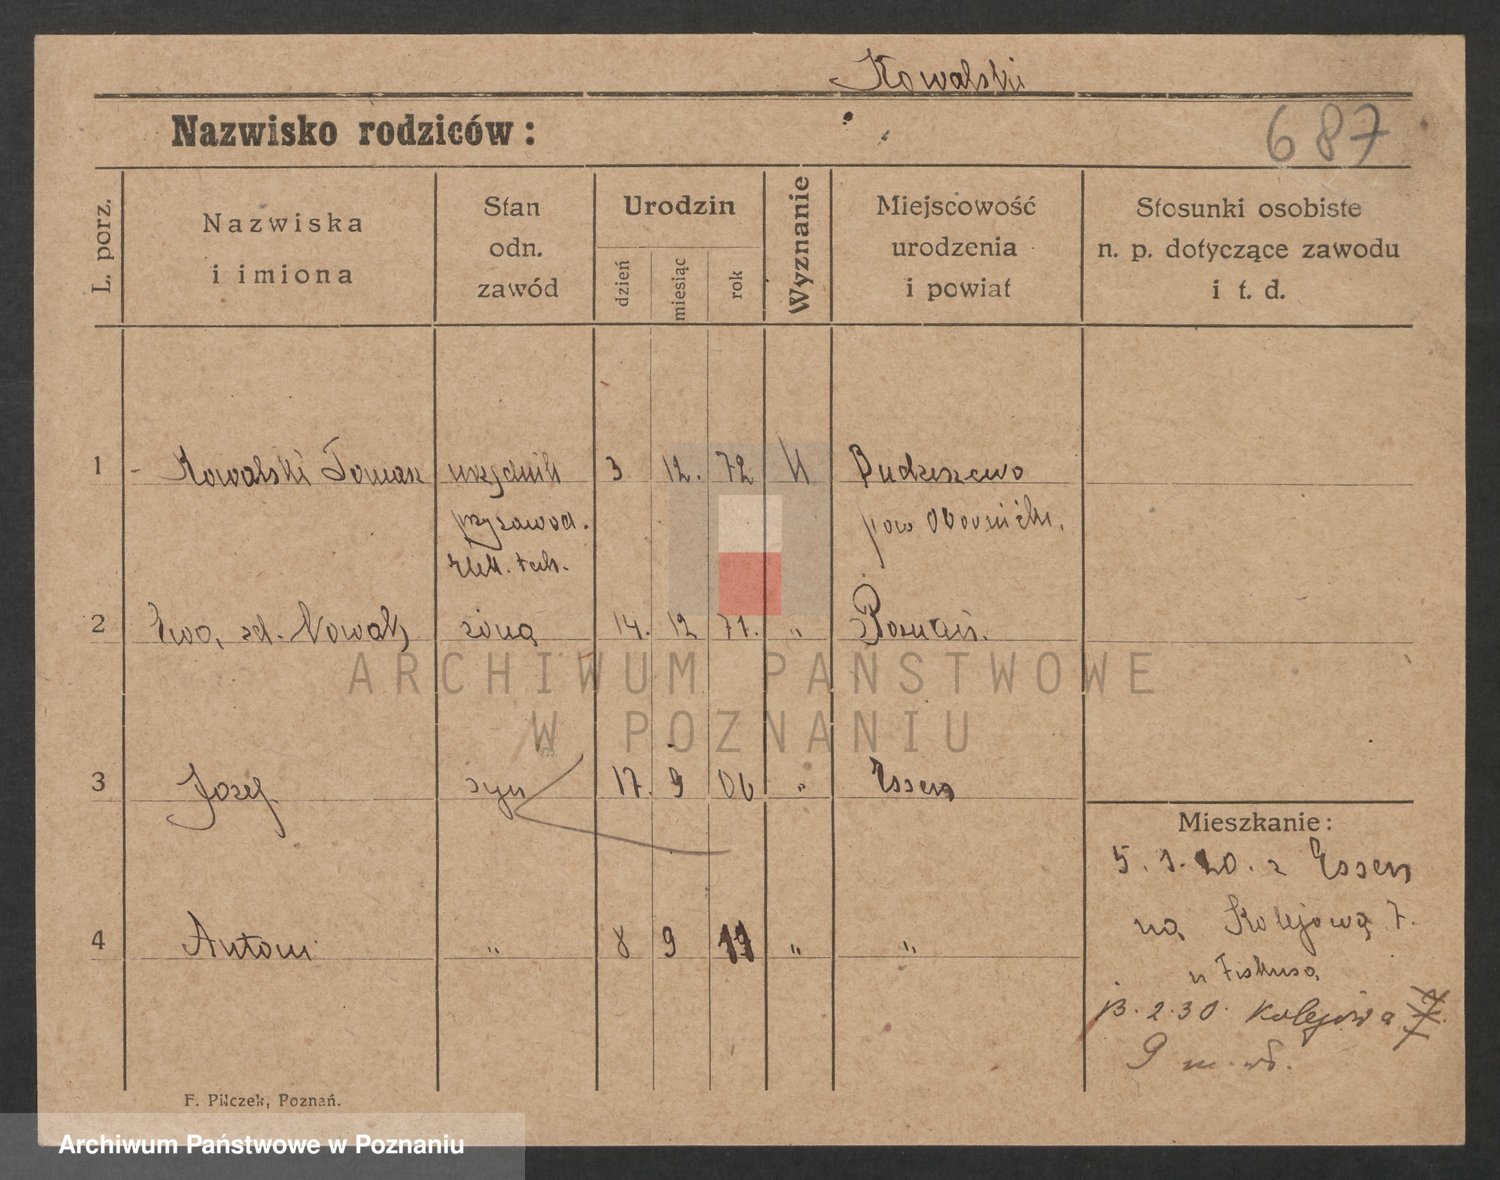 Kowalski
Nazwisko rodziców:
687
L. porz.
Nazwiska
i imiona
Stan
odn.
zawód
Urodzin
dzień
miesiąc
rok
Wyznanie
Miejscowość
urodzenia
i powiat
Stosunki osobiste
n. p. dotyczące zawodu
i t. d.
1 - Kowalski Tomasz urzędnik 3 12. 72 Budziszewo
przy zawod. pow Obornicki.
2 Ewa, zd. Nowak żona 14. 12 71. " Poznań.
ARCHIWUM PAŃSTWOWE
W POZNANIU
3 Józef syn 17. 9 06 " Essen
Mieszkanie:
5. 1. 20. z Essen
na Kolejową 7.
u Fiskusa
4 Antoni " 8 9 19 " "
13. 2. 30. Kolejowa 7
9 m.
F. Pilczek, Poznań.
Archiwum Państwowe w Poznaniu